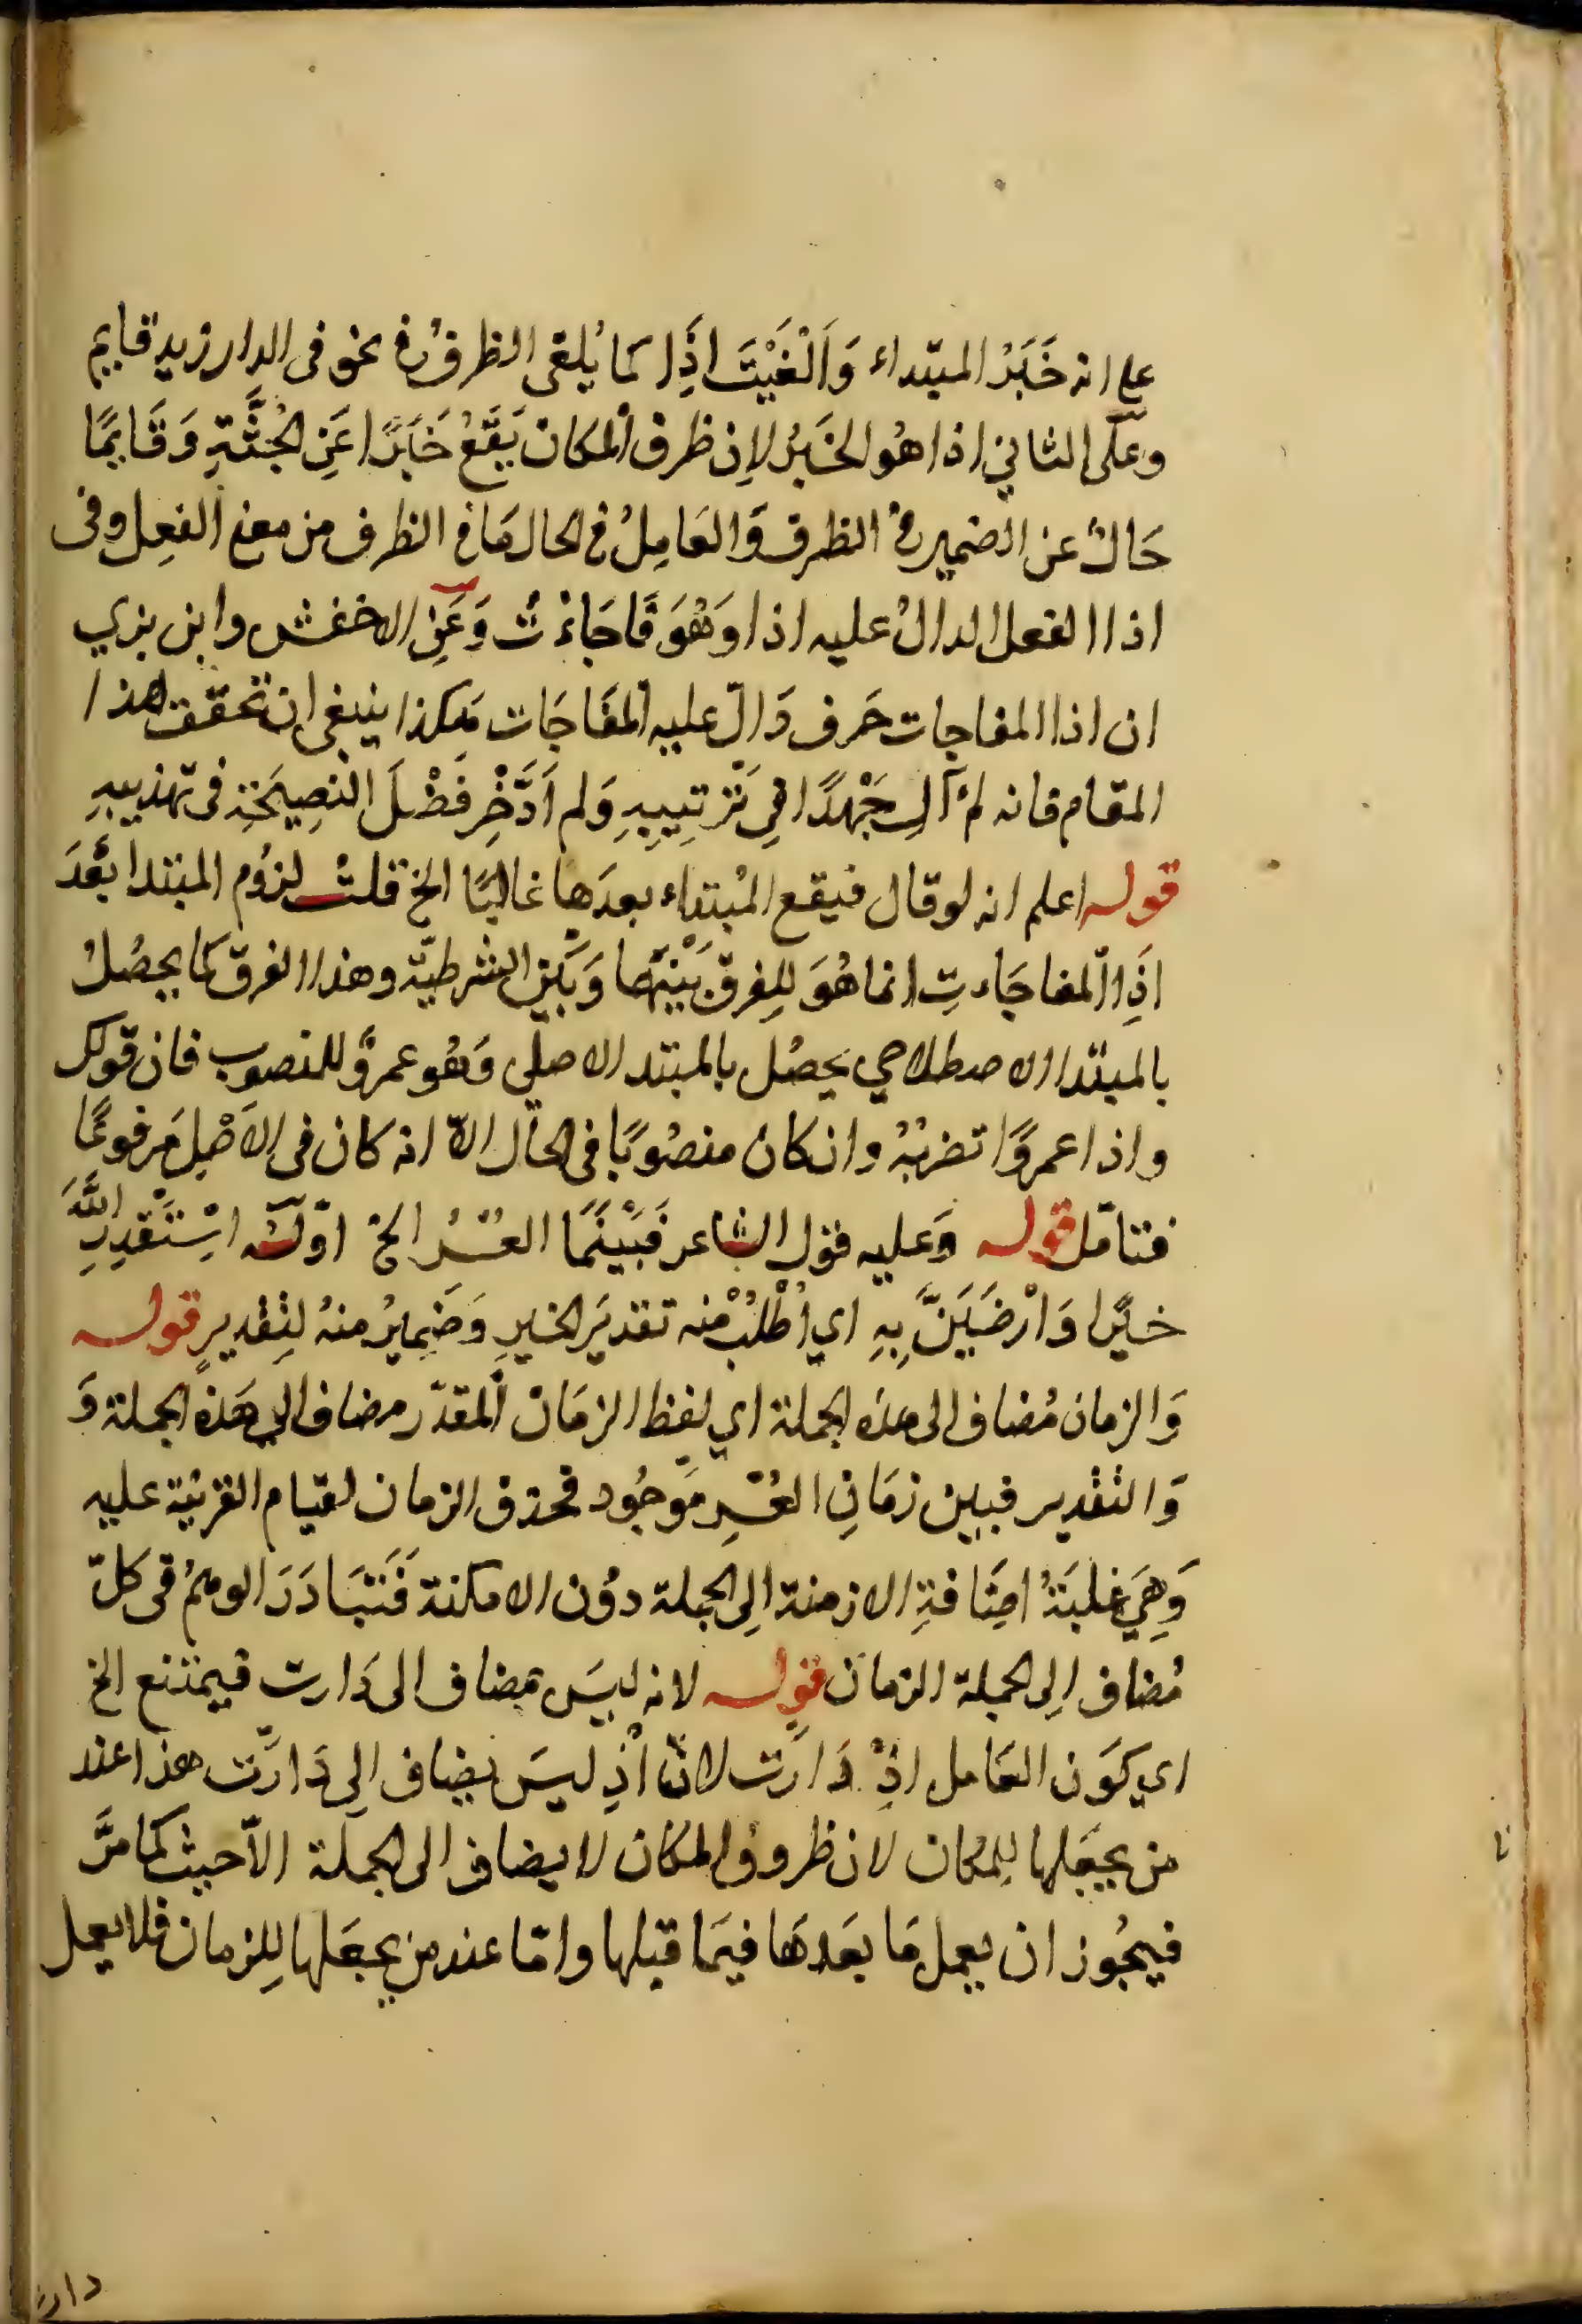 على انه خَبَرُ المبتداء وَاَلْغَيْتَ اذِا كما يُلغى الظرفُ في نحو فى الدار زيد قايم
وعلى الثاني اذا هُو الخَبَرُ لاِن ظرف المكان يَقَعُ خَبَرًا عَنِ الجُثَّةِ وَقَايمًا
حَالٌ عن الضمير في الظرف وَالعَامِلُ في الحال مَا في الظرف من معنى الفعِل وفى
اذا الفعل الدالُ عليه اذا وَهُوَ فَاجَاءْتُ وَعَنِ الاخفش وابن بري
ان اذا المفاجات حَرف دَالّ عليه المفَاجَات هَكذا ينبغى ان تحقق هذا
المقام فانه لم آلِ جَهْدًا فِي تَرْتِيبِهِ وَلم اَدَّخِرْ فَضْلَ النَصِيحَةِ فى تهذيبهِ
قوله اعلم انه لو قال فيقع المُبتداء بعدَها غالبًا الخ قلتُ لزُوم المبتدا بَعْدَ
اذِا المفاجَاءتِ انما هُوَ لِلفرق بَيْنَهَا وَبَيْنِ الشرطيّة وهذا الفرق كما يحصُلُ
بالمبتدا الاصطلاحي يحصُل بالمبتدا الاصلى وَهُو عمروٌ للمنصوب فان قولك
واذا عمروًا تضربُهُ وان كان منصُوبًا فى الحال الاّ انه كان فى الاَصْلِ مَرفوعًا
فتامّل قوله وَعليه قول الشاعر فَبَيْنَمَا العُسْرُ الخ اوّله اسْتَقْدِرِ اللَّهَ
خيرًا وَارْضَيَنَّ بِهِ اي اُطْلُبْ مْنه تقديَر الخيرِ وَضَمِيرُ منهُ لِتقديرٍ قوله
وَالزمان مُضاف الى هذه الجملة اي لفظ الزمَان المقدّر مضاف الى هَذه الجملة وَ
وَالتقدير فبين زمَانِ العُسْرِ مَوجُود فحذف الزمان لقيام القرينة عليه
وَهِيَ غلبَةُ اضَافةِ الازمنة الِى الجملة دوُن الامكنة فَتَبَادَرَ الوهمُ فى كلّ
مُضاف الِى الجملة الزمان قوله لانه ليسَ مضاف الى دَارت فيمتنع الخ
اي كَوَن العَامل اذْ دَارَت لانّ اذْ ليسَ بضاف الِى دَارَت هذا عند
من يجعَلها لِلمكان لان ظروفُ المكان لا يضاف الى الجملة الاّ حيث كمَا مَرَّ
فيجُوز ان يعمل مَا بعَدهَا فيَما قبلها وامّا عند من يجعَلها لِلزمان فلا يعمل